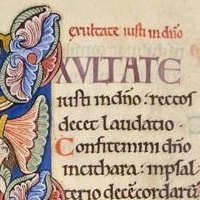 exultate iusti in dño
XVLTATE
iusti in dño: rectos
decet laudatio.
Confitemini dño
in cithara: in psal
terio decē cordarū